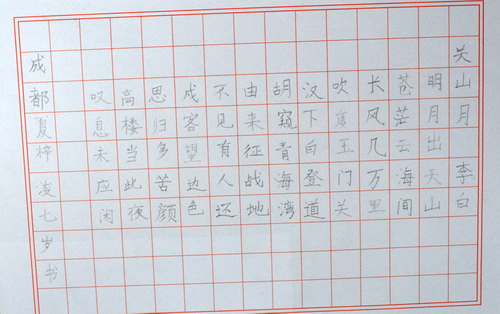 关山月 李白
明月出天山
苍茫云海间
长风几万里
吹度玉门关
汉下白登道
胡窥青海湾
由来征战地
不见有人还
戍客望边色
思归多苦颜
高楼当此夜
叹息未应闲
成都夏梓凌七岁书